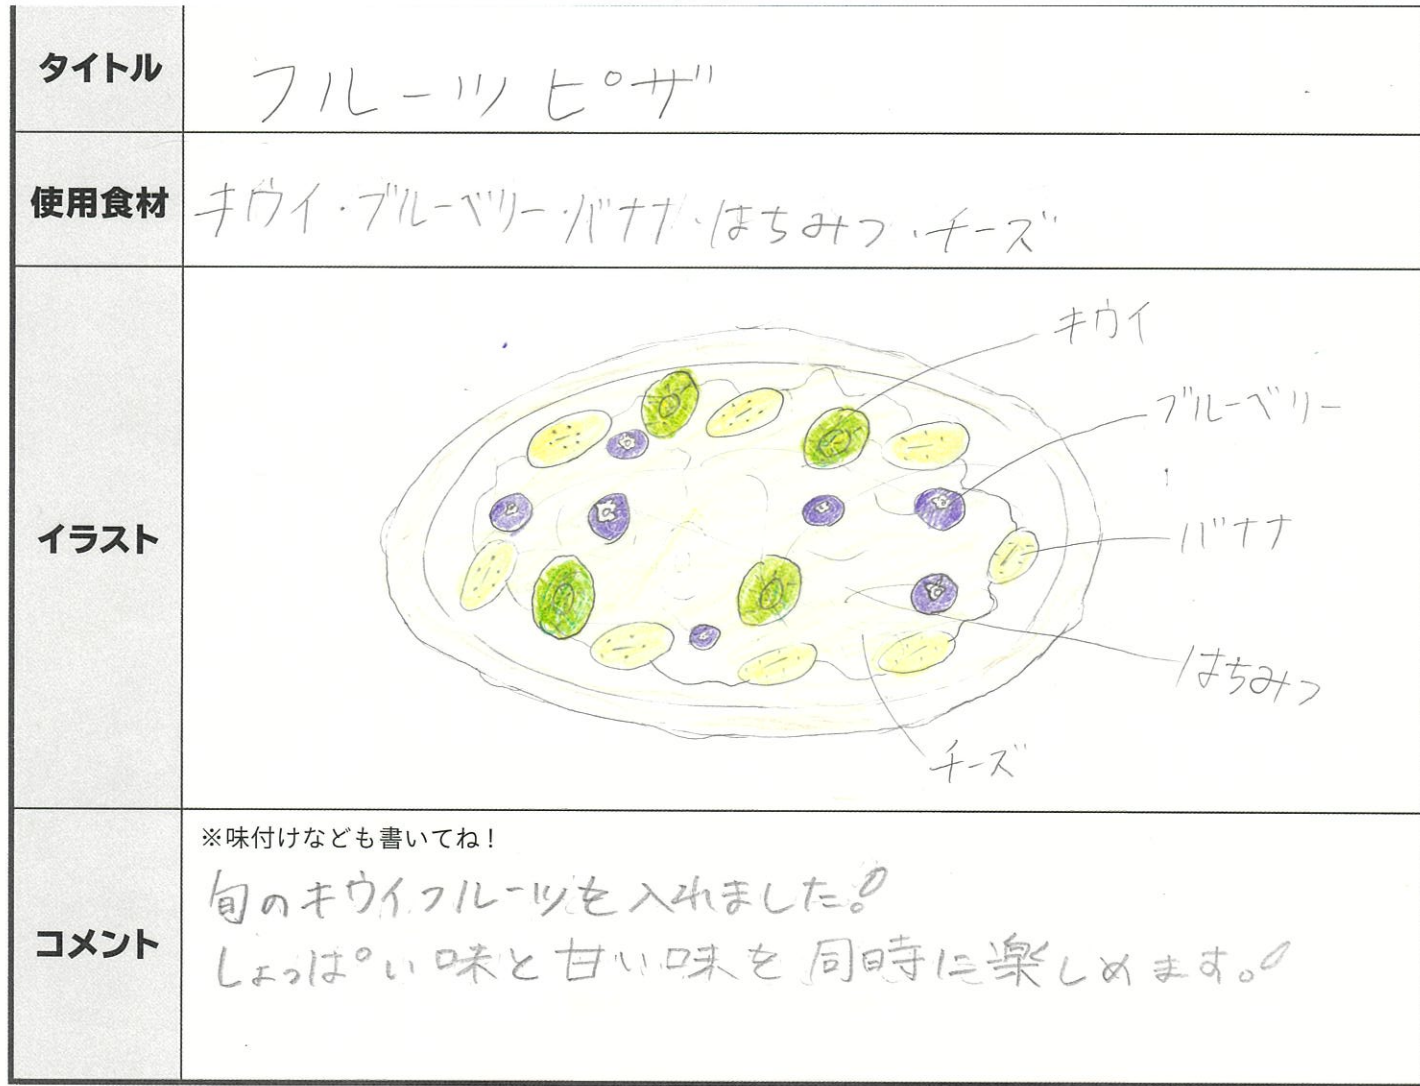 タイトル
フルーツピザ
使用食材
キウイ・ブルーベリー・バナナ・はちみつ・チーズ
イラスト
キウイ
ブルーベリー
バナナ
はちみつ
チーズ
コメント
※味付けなども書いてね!
旬のキウイフルーツを入れました!
しょっぱい味と甘い味を同時に楽しめます。!